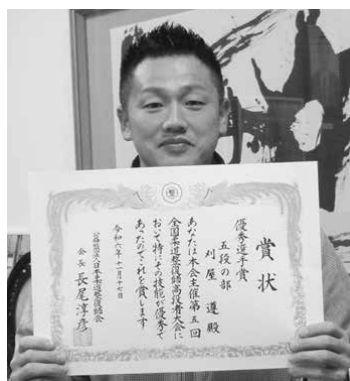 賞状
優秀選手賞
五段の部
刈屋 遵 殿
あなたは本会主催第五回
全国柔道整復師高段者大会に
おいて特にその技能が優秀で
あったのでこれを賞します
令和六年十一月十七日
公益社団法人日本柔道整復師会
会長 長尾淳彦